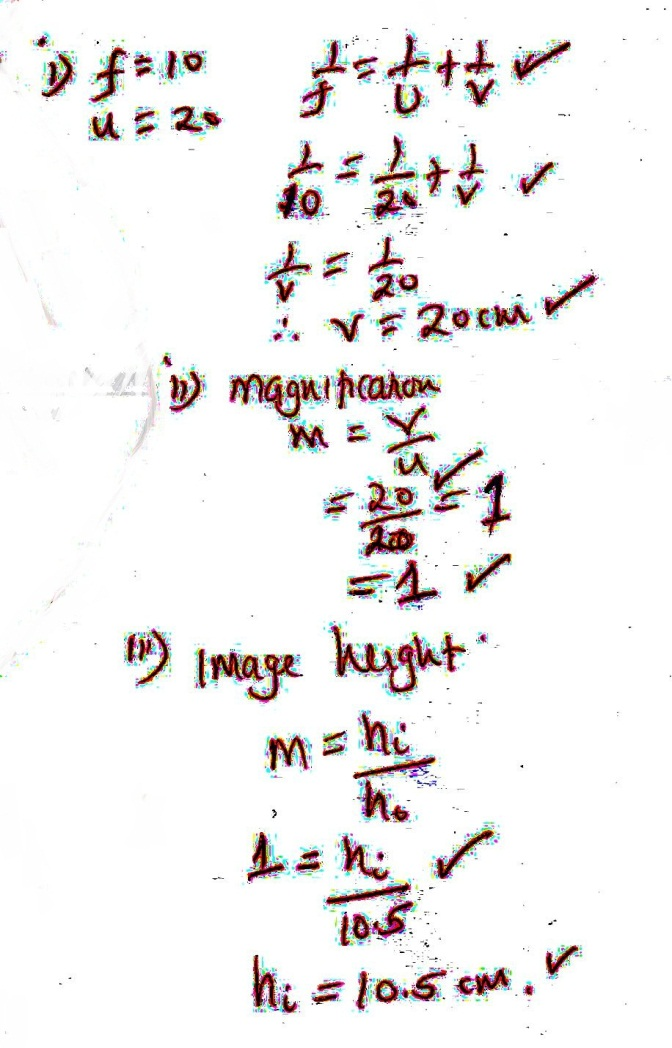 i) f = 10
u = 20
1/f = 1/U + 1/V ✓
1/10 = 1/20 + 1/V ✓
1/V = 1/20
∴ V = 20cm ✓
ii) Magnification
m = V/u
= 20/20 ✓ = 1
= 1 ✓
iii) Image height
m = hi/ho
1 = hi/10.5 ✓
hi = 10.5 cm. ✓